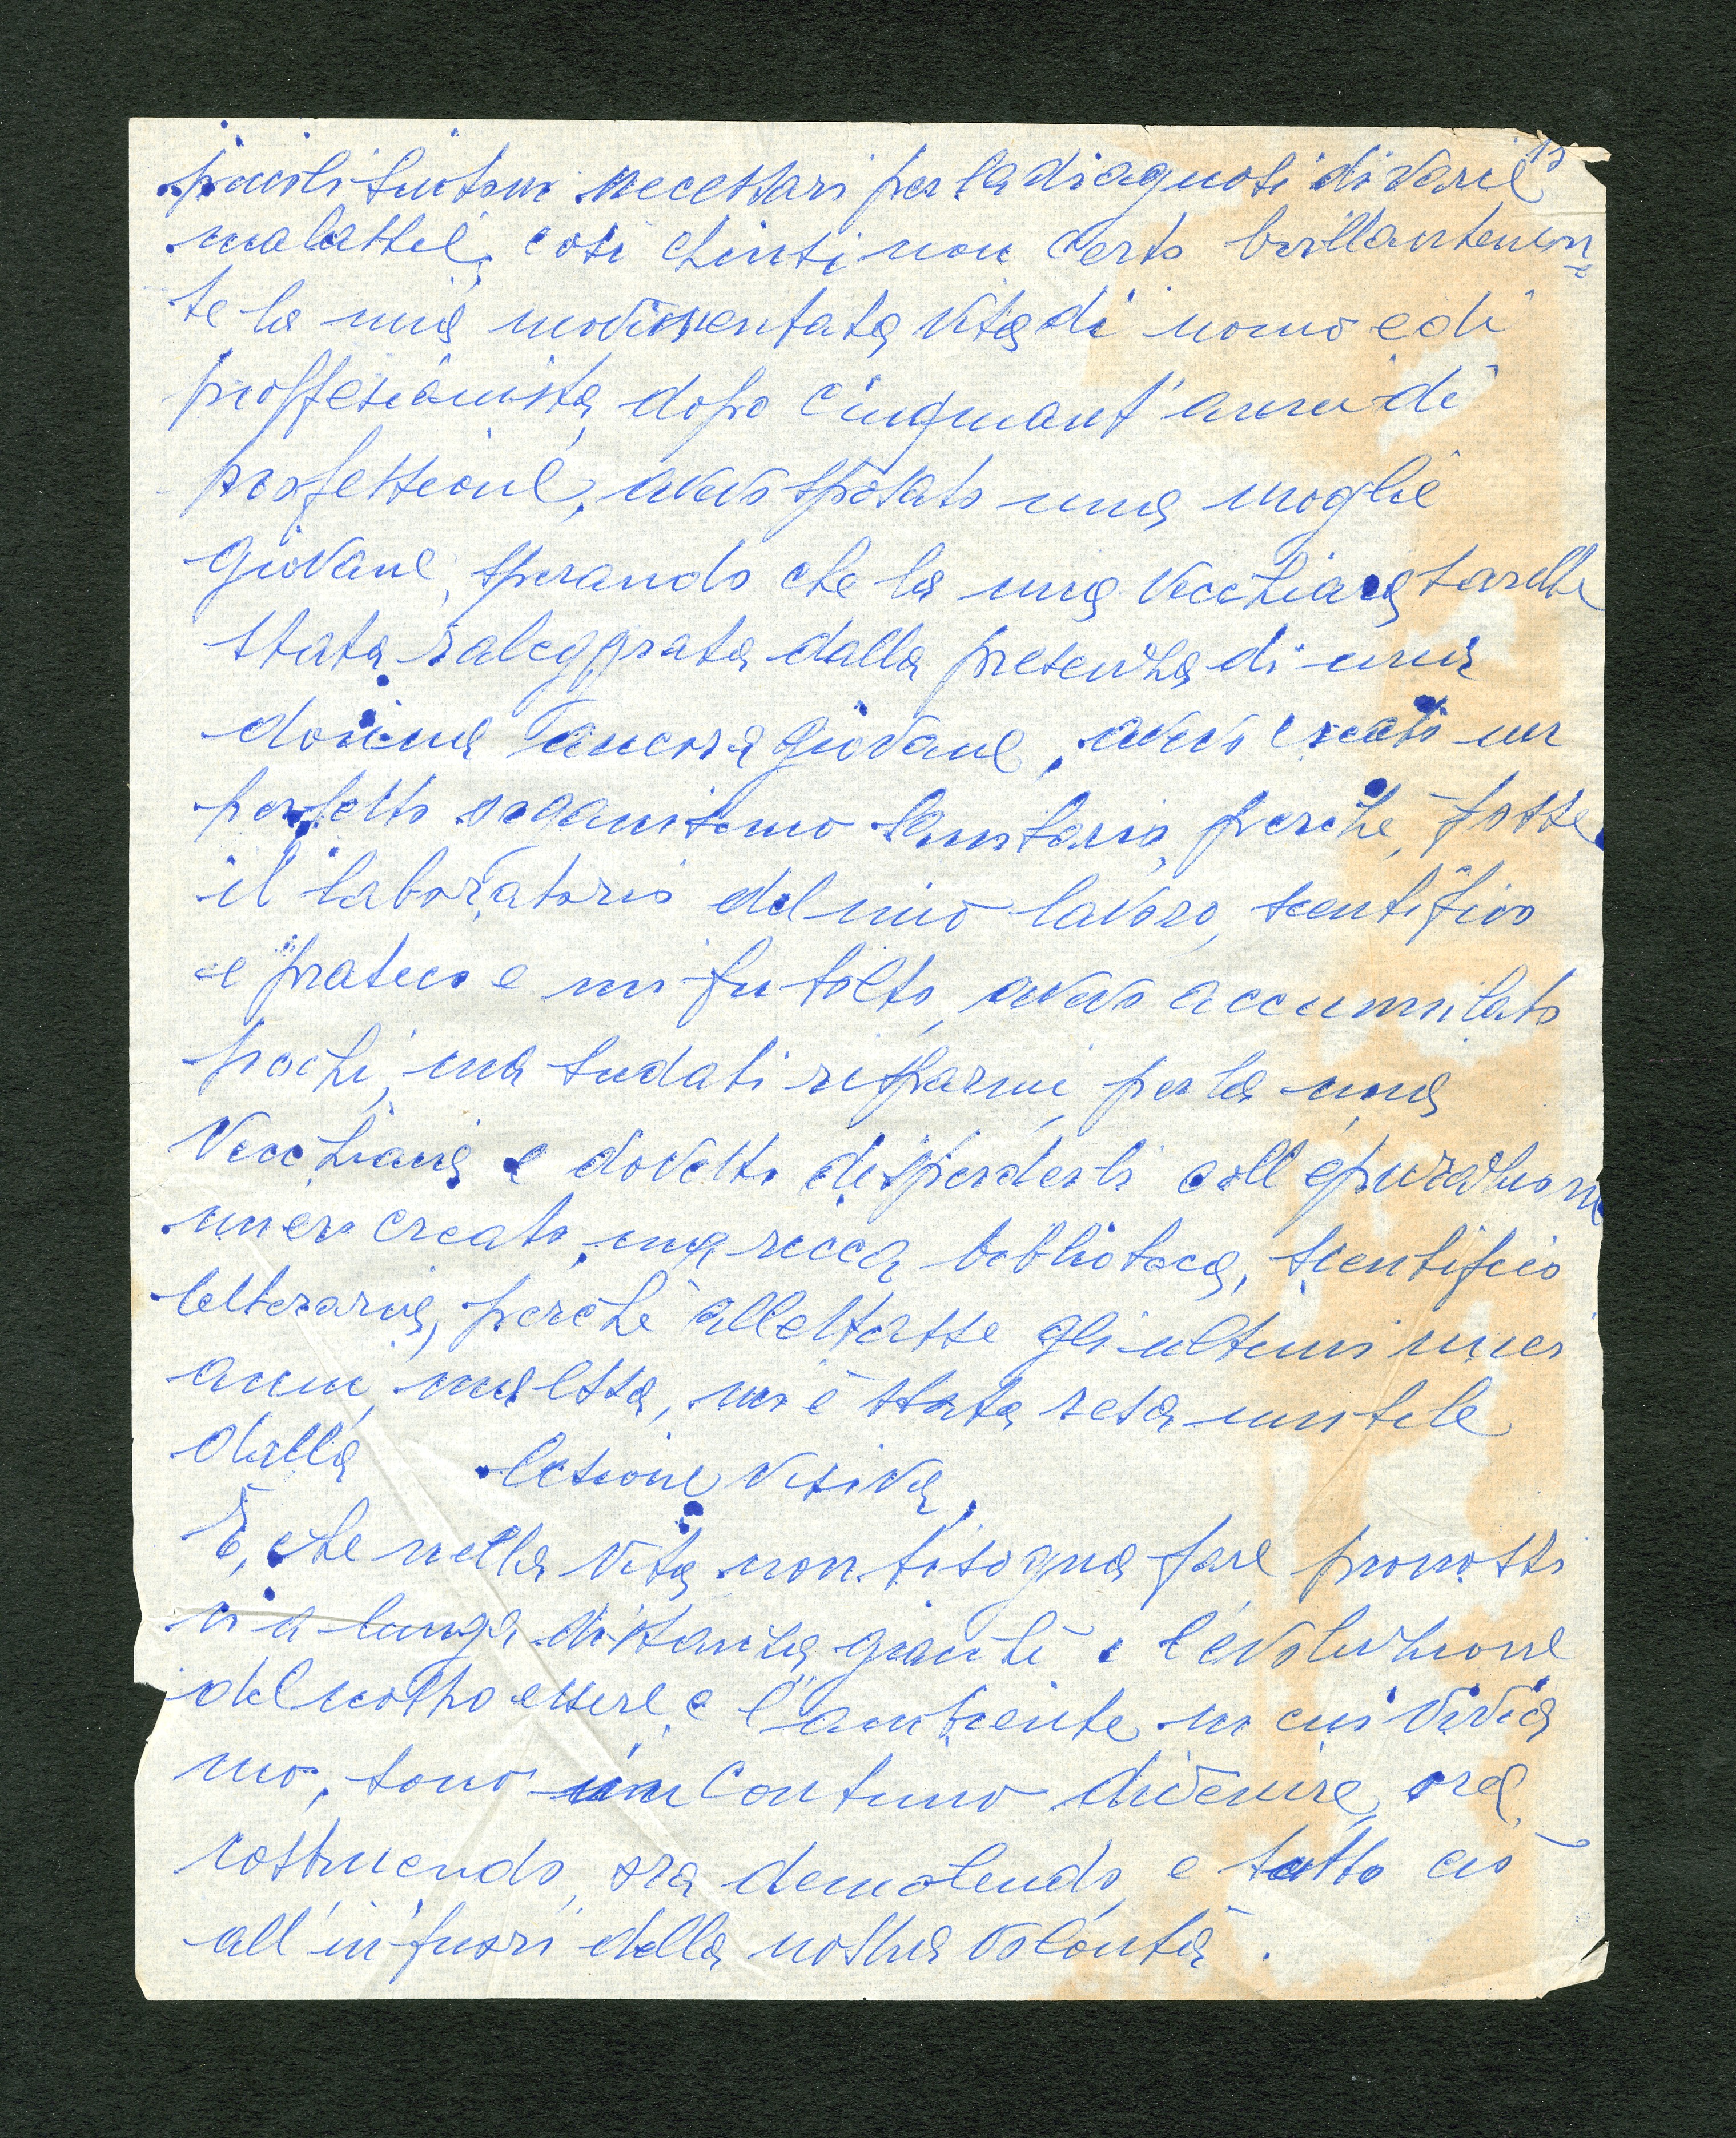 15
piccoli sintomi necessari per la diagnosi di varie
malattie, così chiusi non certo brillantemen=
te la mia movimentata vita di uomo e di
proffesionista, dopo cinquant'anni di
professione, avevo sposato una moglie
giovane, sperando che la mia vecchiaia sarebbe
stata ralleggrata dalla presenza di una
donna ancora giovane, avevo creato un
perfetto organismo sanitario, perchè, fosse
il laboratorio del mio lavoro, scentifico
e pratico e mi fu tolto, avevo accumulato
pochi, ma sudati risparmi, per la mia
vecchiaia e dovetti disperderli coll'epurazione
mi ero creato, una ricca biblioteca, scentifico
letteraria, perchè allettasse gli ultimi miei
anni, ma essa, mi è stata resa inutile
dalla lesione visiva,
È, che nella vita non bisogna fare pronosti
ci a lunga distanza, giacchè l'evoluzione
del nostro essere e l'ambiente in cui vivia
mo, sono in continuo divenire, ora
costruendo, ora demolendo, e tutto ciò
all'infuori della nostra volontà.